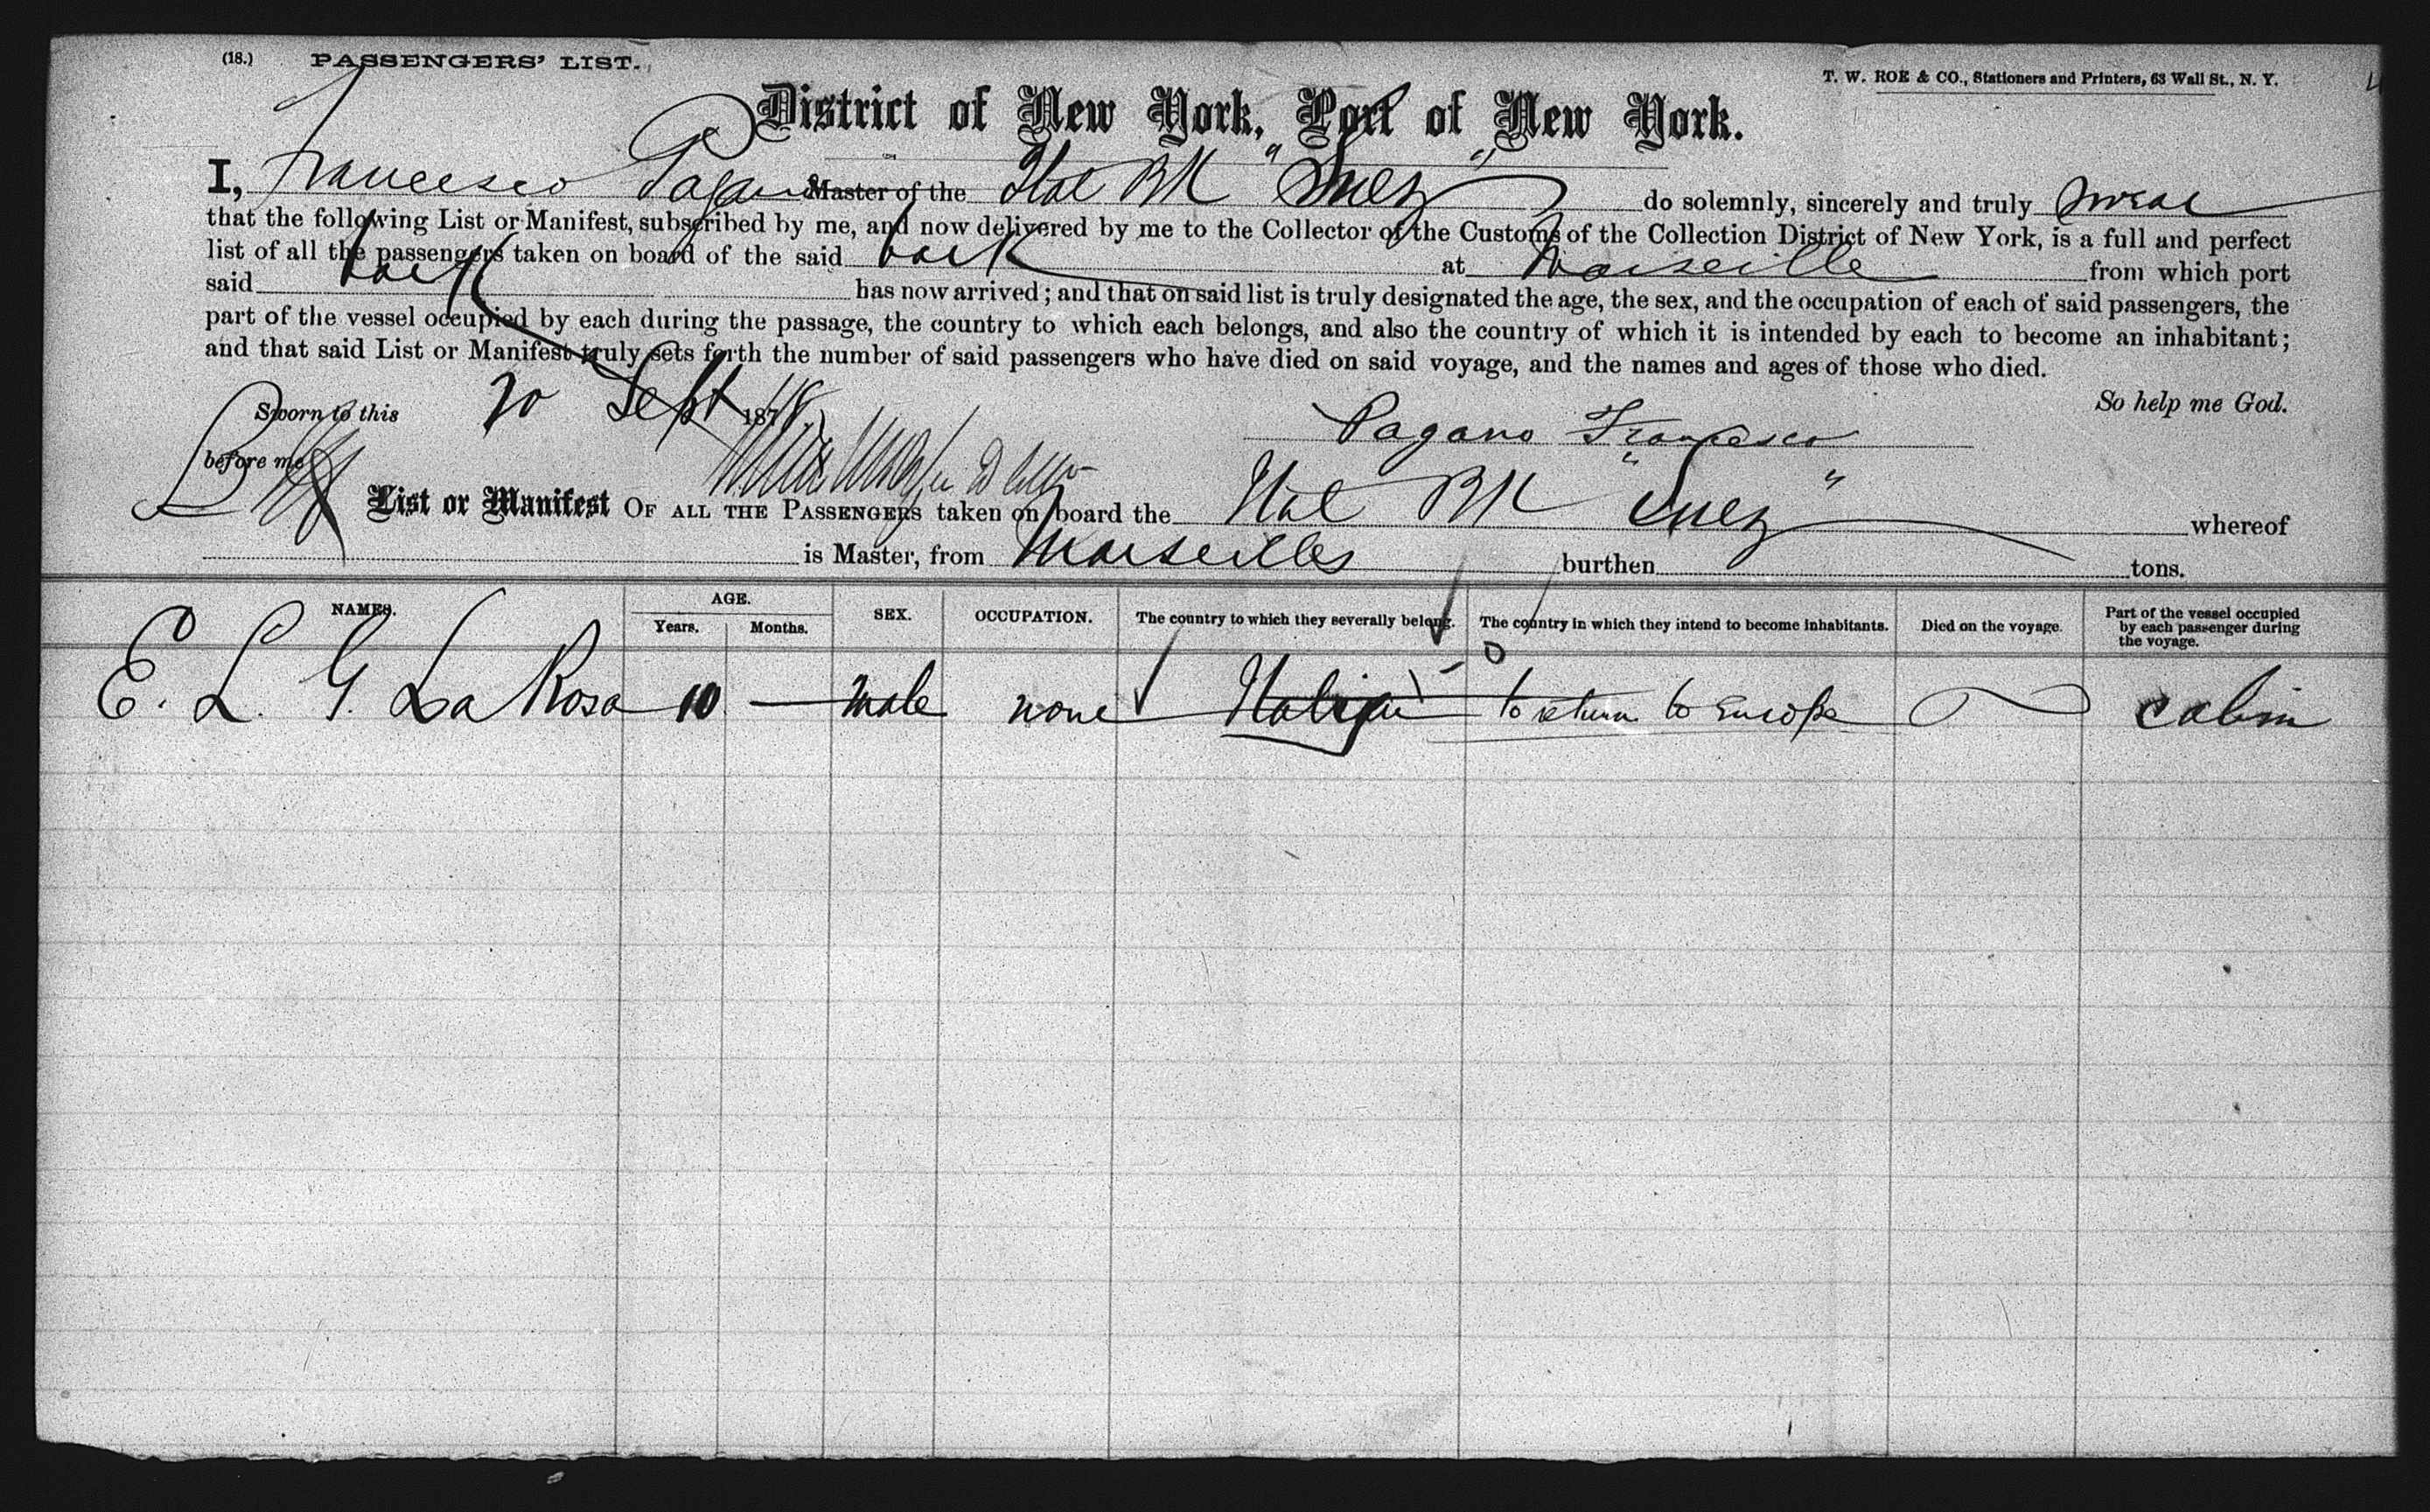 (18.) PASSENGERS' LIST. T. W. ROE & CO., Stationers and Printers, 63 Wall St., N. Y.
District of New York, Port of New York.
I, Francesco Pagano Master of the Ital BK "Suez" do solemnly, sincerely and truly swear
that the following List or Manifest, subscribed by me, and now delivered by me to the Collector of the Customs of the Collection District of New York, is a full and perfect
list of all the passengers taken on board of the said bark at Marseille from which port
said bark has now arrived; and that on said list is truly designated the age, the sex, and the occupation of each of said passengers, the
part of the vessel occupied by each during the passage, the country to which each belongs, and also the country of which it is intended by each to become an inhabitant;
and that said List or Manifest truly sets forth the number of said passengers who have died on said voyage, and the names and ages of those who died.
So help me God.
Sworn to this 20 Sept 1878
Pagano Francesco
before me
List or Manifest OF ALL THE PASSENGERS taken on board the Ital BK "Suez" whereof
is Master, from Marseilles burthen tons.
NAMES. AGE. Years. Months. SEX. OCCUPATION. The country to which they severally belong. The country in which they intend to become inhabitants. Died on the voyage. Part of the vessel occupied by each passenger during the voyage.
E. L. G. La Rosa 10 — male none Italian to return to Europe cabin